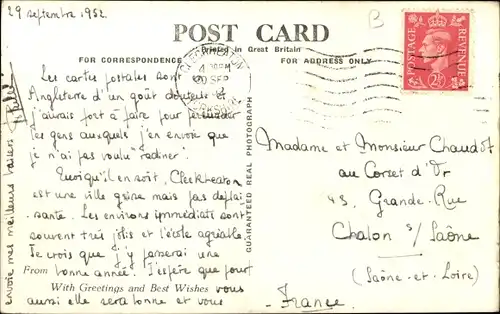 29 septembre 1952.
POST CARD
Printed in Great Britain
FOR CORRESPONDENCE
FOR ADDRESS ONLY
CLECKHEATON
SEP
YORKSHIRE
POSTAGE
REVENUE
2½D
B
Les cartes postales sont en
Angleterre d'un goût douteux et
j'aurais fort à faire pour persuader
les gens auxquels j'en envoie que
je n'ai pas voulu "radiner".
Quoiqu'il en soit, Cleckheaton
est une ville grise mais pas déplai-
sante. Les environs immédiats sont
souvent très jolis et l'école agréable.
Je crois que j'y passerai une
From bonne année. J'espère que pour
With Greetings and Best Wishes vous
aussi elle sera bonne et vous
envoie mes meilleurs baisers
GUARANTEED REAL PHOTOGRAPH
Madame et Monsieur Chaudot
au Corset d'Or
43, Grande-Rue
Chalon s/ Saône
(Saône-et-Loire)
France.